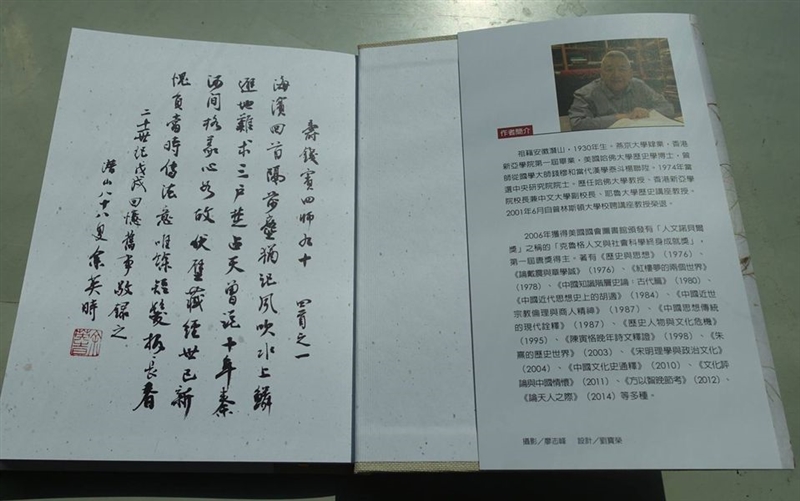 壽錢賓四師九十 四首之一
海濱回首隔前塵猶記風吹水上鱗
避地難求三戶楚占天曾說十年秦
河間格義心如故伏壁藏經世已新
愧負當時傳法意唯餘短髮報長春
二十世紀戊戌回憶舊事敬錄之
潛山八十八叟余英時
作者簡介
祖籍安徽潛山，1930年生。燕京大學肄業，香港
新亞學院第一屆畢業，美國哈佛大學史學博士。曾
師從國學大師錢穆和當代漢學泰斗楊聯陞。1974年當
選中央研究院院士。歷任哈佛大學教授、香港新亞學
院校長兼中文大學副校長、耶魯大學歷史講座教授。
2001年6月自普林斯頓大學校聘講座教授榮退。
2006年獲得美國國會圖書館頒發有「人文諾貝爾
獎」之稱的「克魯格人文與社會科學終身成就獎」，
第一屆唐獎得主。著有《歷史與思想》（1976）、
《論戴震與章學誠》（1976）、《紅樓夢的兩個世界》
（1978）、《中國知識階層史論：古代篇》（1980）、
《中國近代思想史上的胡適》（1984）、《中國近世
宗教倫理與商人精神》（1987）、《中國思想傳統
的現代詮釋》（1987）、《歷史人物與文化危機》
（1995）、《陳寅恪晚年詩文釋證》（1998）、《朱
熹的歷史世界》（2003）、《宋明理學與政治文化》
（2004）、《中國文化史通釋》（2010）、《文化評
論與中國情懷》（2011）、《方以智晚節考》（2012）、
《論天人之際》（2014）等多種。
攝影／廖志峰 設計／劉寶榮